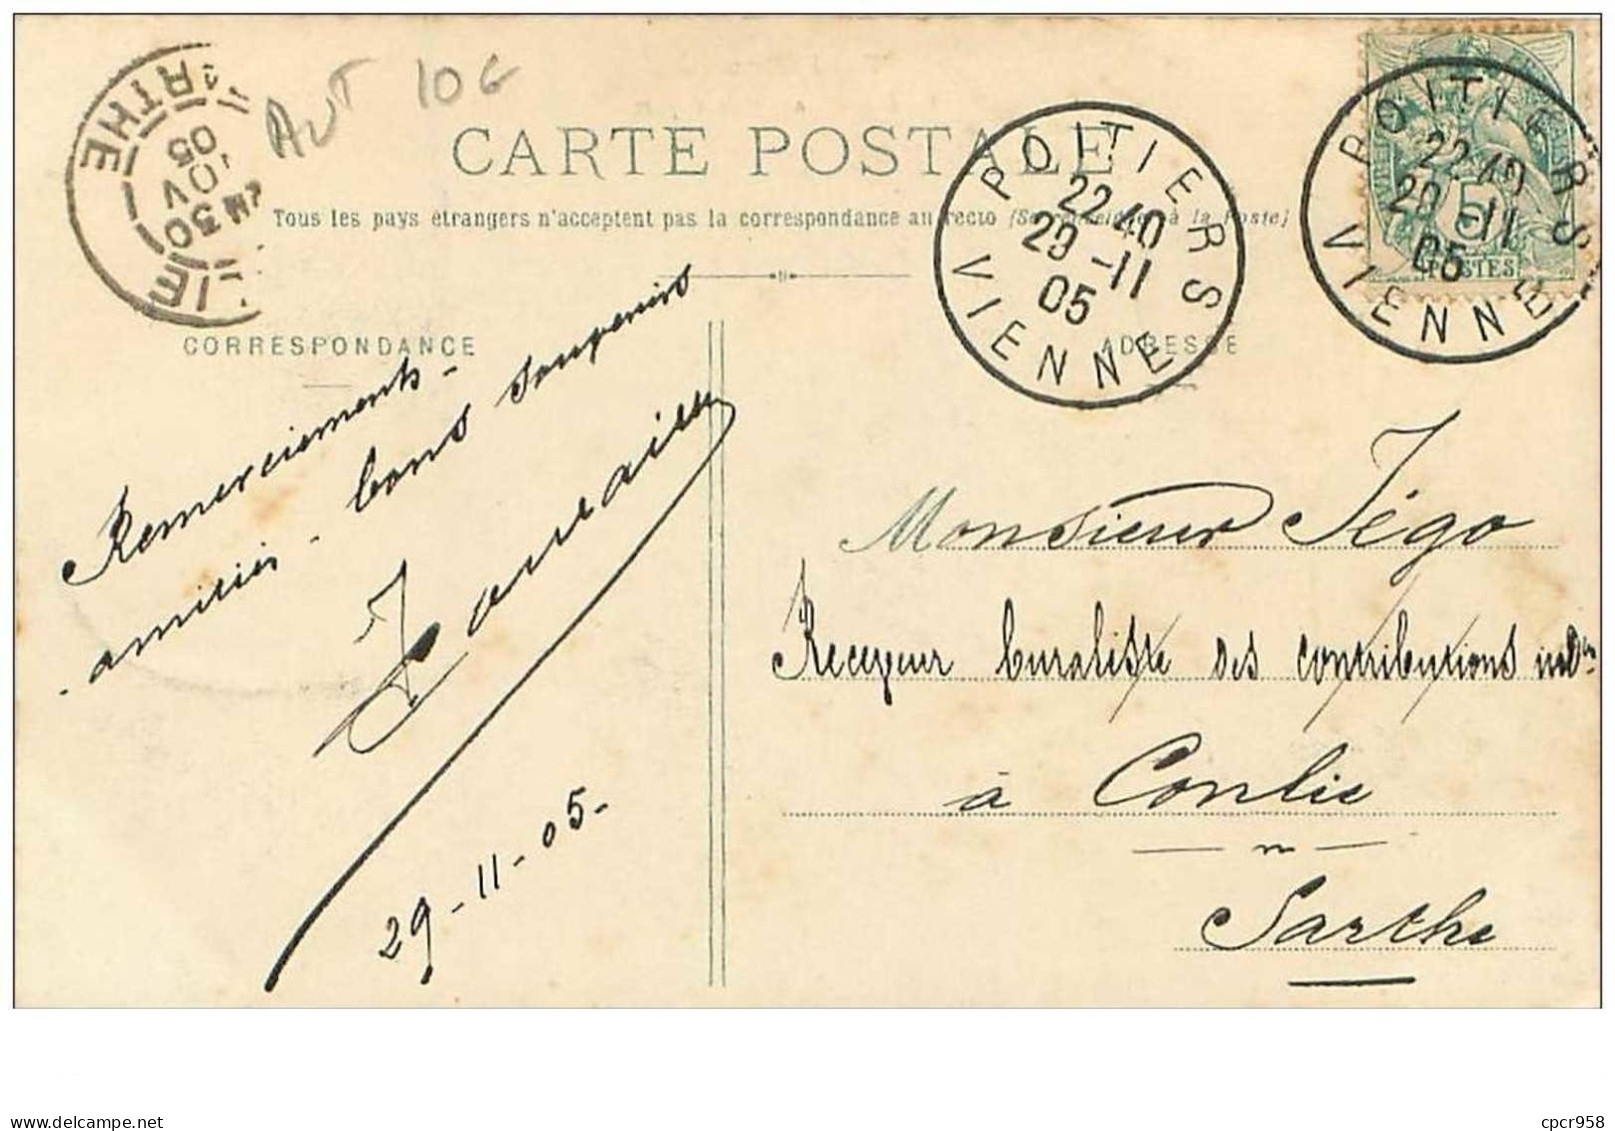 AUT 10€
CARTE POSTALE
Tous les pays étrangers n'acceptent pas la correspondance au recto (Se renseigner à la Poste)
POITIERS
22 40
29 -11
05
VIENNE
POITIERS
22 40
29 -11
05
VIENNE
5
POSTES
RTHE
30
NOV
05
LIE
CORRESPONDANCE
ADRESSE
Remerciements -
amitiés - bons souvenirs
29-11-05-
Monsieur Jégo
Receveur buraliste des contributions indtes
à Conlie
Sarthe
cpcr958